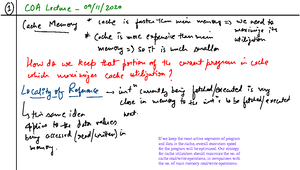 1 COA Lecture - 09/11/2020
Cache Memory * cache is faster than main memory => we need to maximize its utilization
* Cache is more expensive than main memory => So it is much smaller
How do we keep that portion of the current program in cache which maximizes cache utilization?
Locality of Reference - instn currently being fetched/executed is very close in memory to the instn to be fetched/executed next.
↳ this same idea applies to the data values being accessed (read/written) in memory.
If we keep the most active segments of program
and data in the cache, overall execution speed
for the program will be optimized. Our strategy
for cache utilization should maximize the no. of
cache read/write operations, in comparison with
the no. of main memory read/write operations.